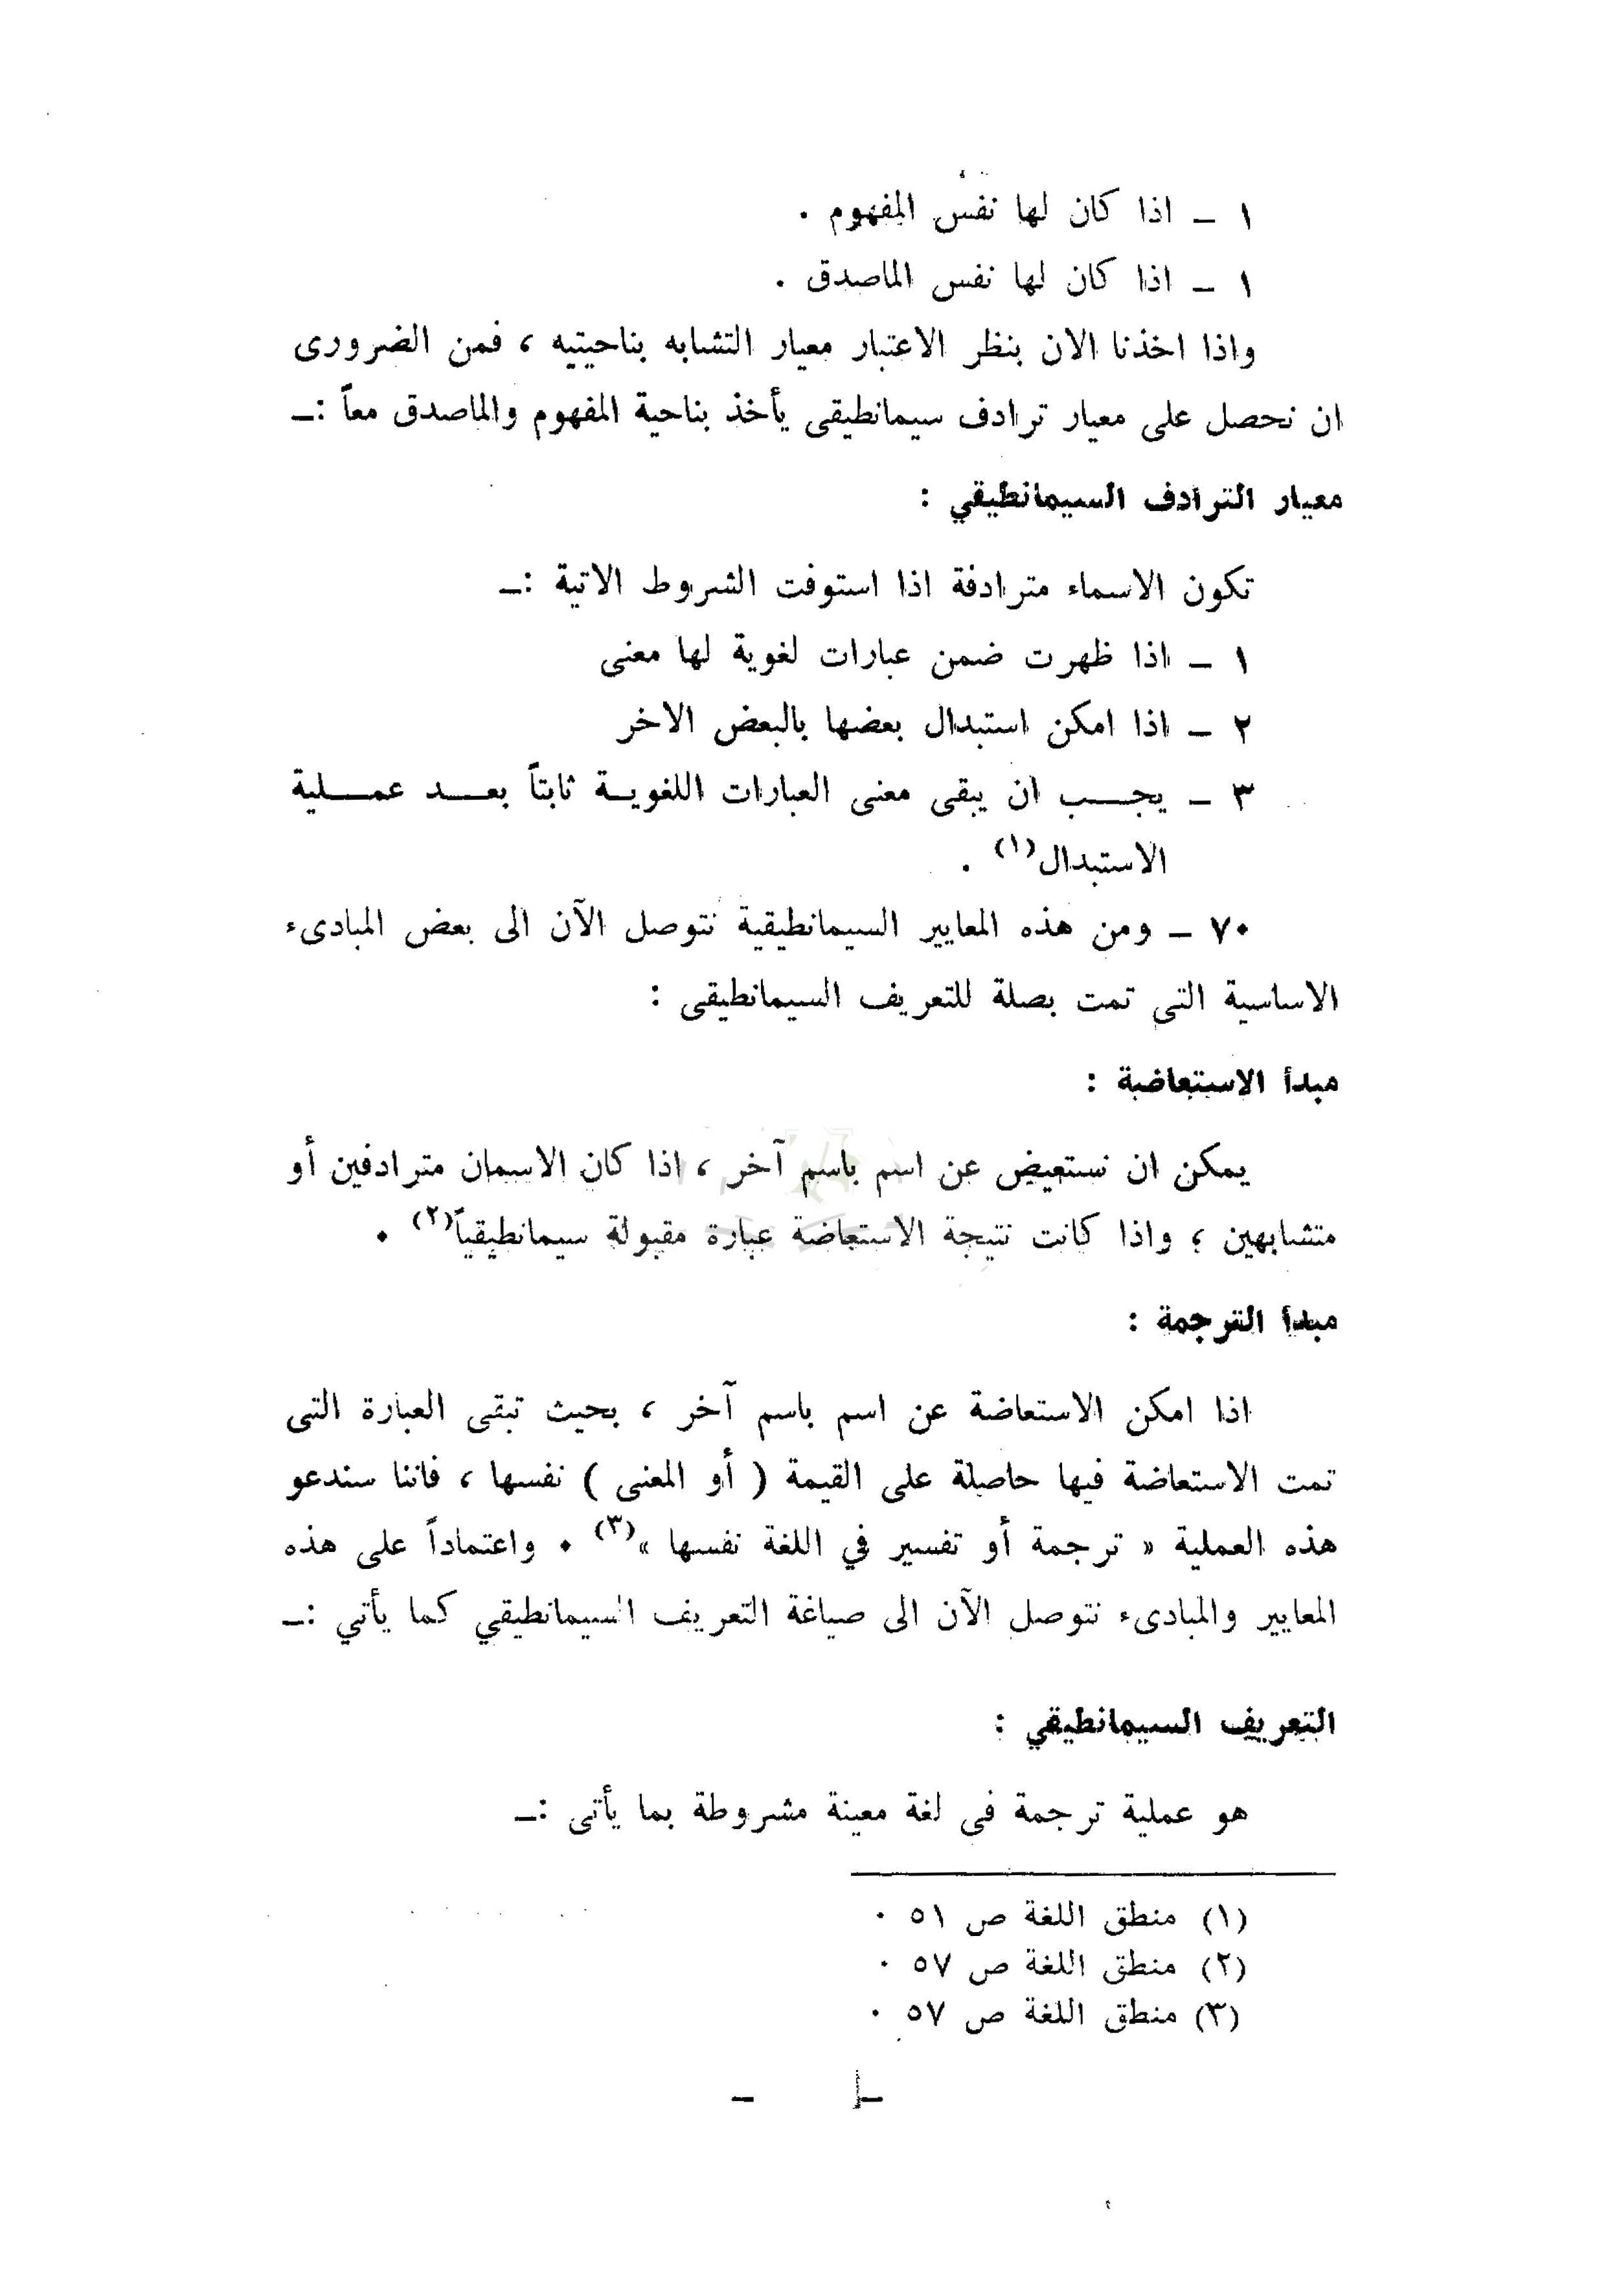 ١ ـ اذا كان لها نفس المفهوم .
١ ـ اذا كان لها نفس الماصدق .
واذا اخذنا الان بنظر الاعتبار معيار التشابه بناحيتيه ، فمن الضرورى
ان نحصل على معيار ترادف سيمانطيقى يأخذ بناحية المفهوم والماصدق معاً :ـ
معيار الترادف السيمانطيقي :
تكون الاسماء مترادفة اذا استوفت الشروط الاتية :ـ
١ ـ اذا ظهرت ضمن عبارات لغوية لها معنى
٢ ـ اذا امكن استبدال بعضها بالبعض الاخر
٣ ـ يجـــب ان يبقى معنى العبارات اللغويـة ثابتاً بعـــد عمـــلية
الاستبدال(١) .
٧٠ ـ ومن هذه المعايير السيمانطيقية نتوصل الآن الى بعض المبادىء
الاساسية التى تمت بصلة للتعريف السيمانطيقى :
مبدأ الاستعاضة :
يمكن ان نستعيض عن اسم باسم آخر ، اذا كان الاسمان مترادفين أو
متشابهين ؛ واذا كانت نتيجة الاستعاضة عبارة مقبولة سيمانطيقياً(٢) .
مبدأ الترجمة :
اذا امكن الاستعاضة عن اسم باسم آخر ، بحيث تبقى العبارة التى
تمت الاستعاضة فيها حاصلة على القيمة ( أو المعنى ) نفسها ، فاننا سندعو
هذه العملية « ترجمة أو تفسير في اللغة نفسها »(٣) . واعتماداً على هذه
المعايير والمبادىء نتوصل الآن الى صياغة التعريف السيمانطيقي كما يأتي :ـ
التعريف السيمانطيقي :
هو عملية ترجمة فى لغة معينة مشروطة بما يأتى :ـ
(١) منطق اللغة ص ٥١ .
(٢) منطق اللغة ص ٥٧ .
(٣) منطق اللغة ص ٥٧ .